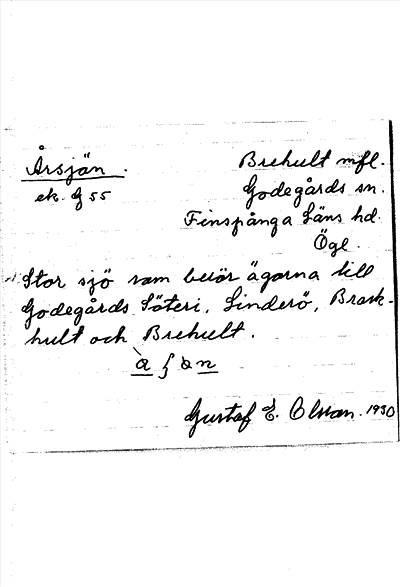 Årsjön. Brehult mfl.
ek. G 55 Godegårds sn.
Finspånga Läns hd.
Ögl.
Stor sjö som berör ägorna till
Godegårds Säteri, Linderö, Brask-
hult och Brehult.
Gustaf E. Olsson. 1930